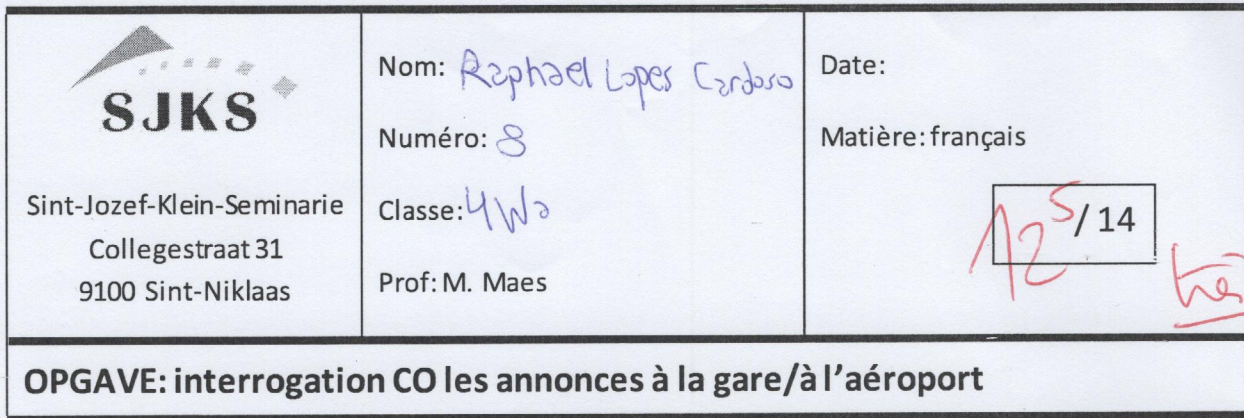 SJKS
Sint-Jozef-Klein-Seminarie
Collegestraat 31
9100 Sint-Niklaas
Nom: Raphael Lopes Cardoso
Numéro: 8
Classe: 4Wa
Prof: M. Maes
Date:
Matière: français
12 5 / 14
OPGAVE: interrogation CO les annonces à la gare/à l'aéroport